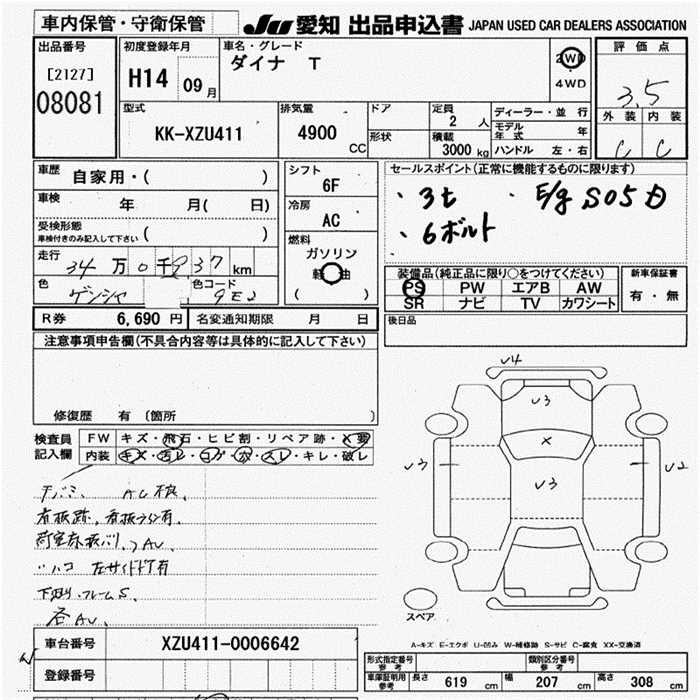 車内保管・守衛保管
JU 愛知 出品申込書 JAPAN USED CAR DEALERS ASSOCIATION
出品番号
[2127]
08081
初度登録年月
H14 09月
車名・グレード
ダイナ T
2WD
4WD
評価点
3.5
外装 内装
C C
型式
KK-XZU411
排気量
4900 cc
ドア
形状
定員
2 人
積載
3000 kg
ディーラー・並行
モデル年式 年
ハンドル 左・右
車歴
自家用・( )
車検
年 月( 日)
受検形態
車検付きのみ記入して下さい ( )
走行
34万0千937km
色
ゲンシャ
色コード
9E2
シフト
6F
冷房
AC
燃料
ガソリン
軽油
( )
セールスポイント(正常に機能するものに限ります)
・3t ・E/g S05D
・6ボルト
装備品(純正品に限り○をつけてください)
PS PW エアB AW
SR ナビ TV カワシート
新車保証書
有・無
後日品
R券 6,690円 名変通知期限 月 日
注意事項申告欄(不具合内容等は具体的に記入して下さい)
修復歴 有 〔箇所 〕
検査員記入欄
FW キズ・飛石・ヒビ割・リペア跡・X要
内装 キズ・汚レ・コゲ・穴・スレ・キレ・破レ
看板跡
下廻り.フレームS.
各AU.
U4
U3
X
U3
U3
U2
スペア
A-キズ E-エクボ U-凹み W-補修跡 S-サビ C-腐食 XX-交換済
車台番号 XZU411-0006642
登録番号
形式指定番号 参考
類別区分番号 参考
車庫証明用参考 長さ 619 cm 幅 207 cm 高さ 308 cm